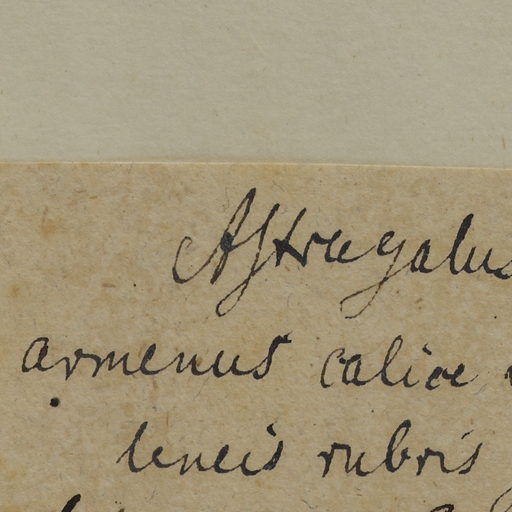 Astragalus
armenus calice
leneis rubris